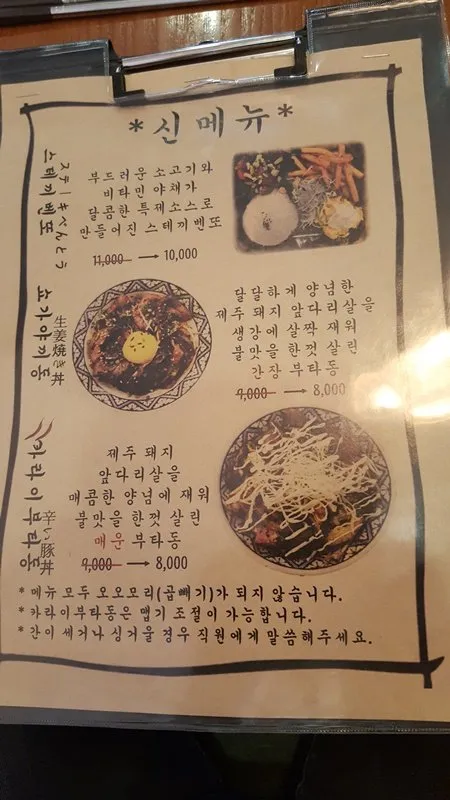 *신메뉴*
스테끼벤또
ステーキべんとう
부드러운 소고기와
비타민 야채가
달콤한 특제소스로
만들어진 스테끼벤또
11,000 → 10,000
쇼가야끼동
生姜焼き丼
달달하게 양념한
제주 돼지 앞다리살을
생강에 살짝 재워
불맛을 한껏 살린
간장 부타동
9,000 → 8,000
카라이부타동
辛い豚丼
제주 돼지
앞다리살을
매콤한 양념에 재워
불맛을 한껏 살린
매운 부타동
9,000 → 8,000
*메뉴 모두 오오모리(곱빼기)가 되지 않습니다.
*카라이부타동은 맵기 조절이 가능합니다.
*간이 세거나 싱거울 경우 직원에게 말씀해주세요.